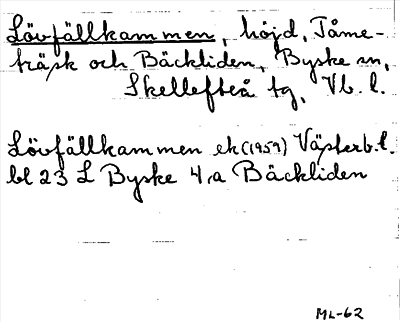 Lövfällkammen, höjd, Tåme-
träsk och Bäckliden, Byske sn,
Skellefteå tg, Vb. l.
Lövfällkammen ek (1959) Västerb. l.
bl 23 L Byske 4:a Bäckliden
ML-62